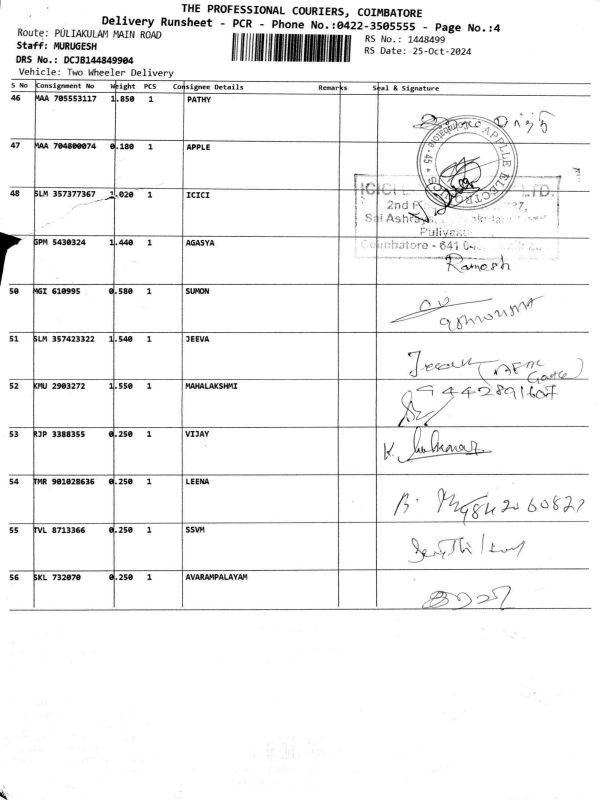 THE PROFESSIONAL COURIERS, COIMBATORE
Delivery Runsheet - PCR - Phone No.:0422-3505555 - Page No.:4
Route: PULIAKULAM MAIN ROAD
RS No.: 1448499
Staff: MURUGESH
RS Date: 25-Oct-2024
DRS No.: DCJB144849904
Vehicle: Two Wheeler Delivery
S No Consignment No Weight PCS Consignee Details Remarks Seal & Signature
46 MAA 705553117 1.850 1 PATHY
47 MAA 704800074 0.180 1 APPLE
APPLLE ELECTRONICS
Coimbatore - 45
48 SLM 357377367 1.020 1 ICICI
ICICI LTD.
2nd
Sai Ashraya
Puliyakulam
Coimbatore - 641 04
GPM 5430324 1.440 1 AGASYA
Ramesh
50 MGI 610995 0.580 1 SUMON
51 SLM 357423322 1.540 1 JEEVA
52 KMU 2903272 1.550 1 MAHALAKSHMI
9442891607
53 RJP 3388355 0.250 1 VIJAY
K.
54 TMR 901028636 0.250 1 LEENA
B. 9842060827
55 TVL 8713366 0.250 1 SSVM
56 SKL 732070 0.250 1 AVARAMPALAYAM